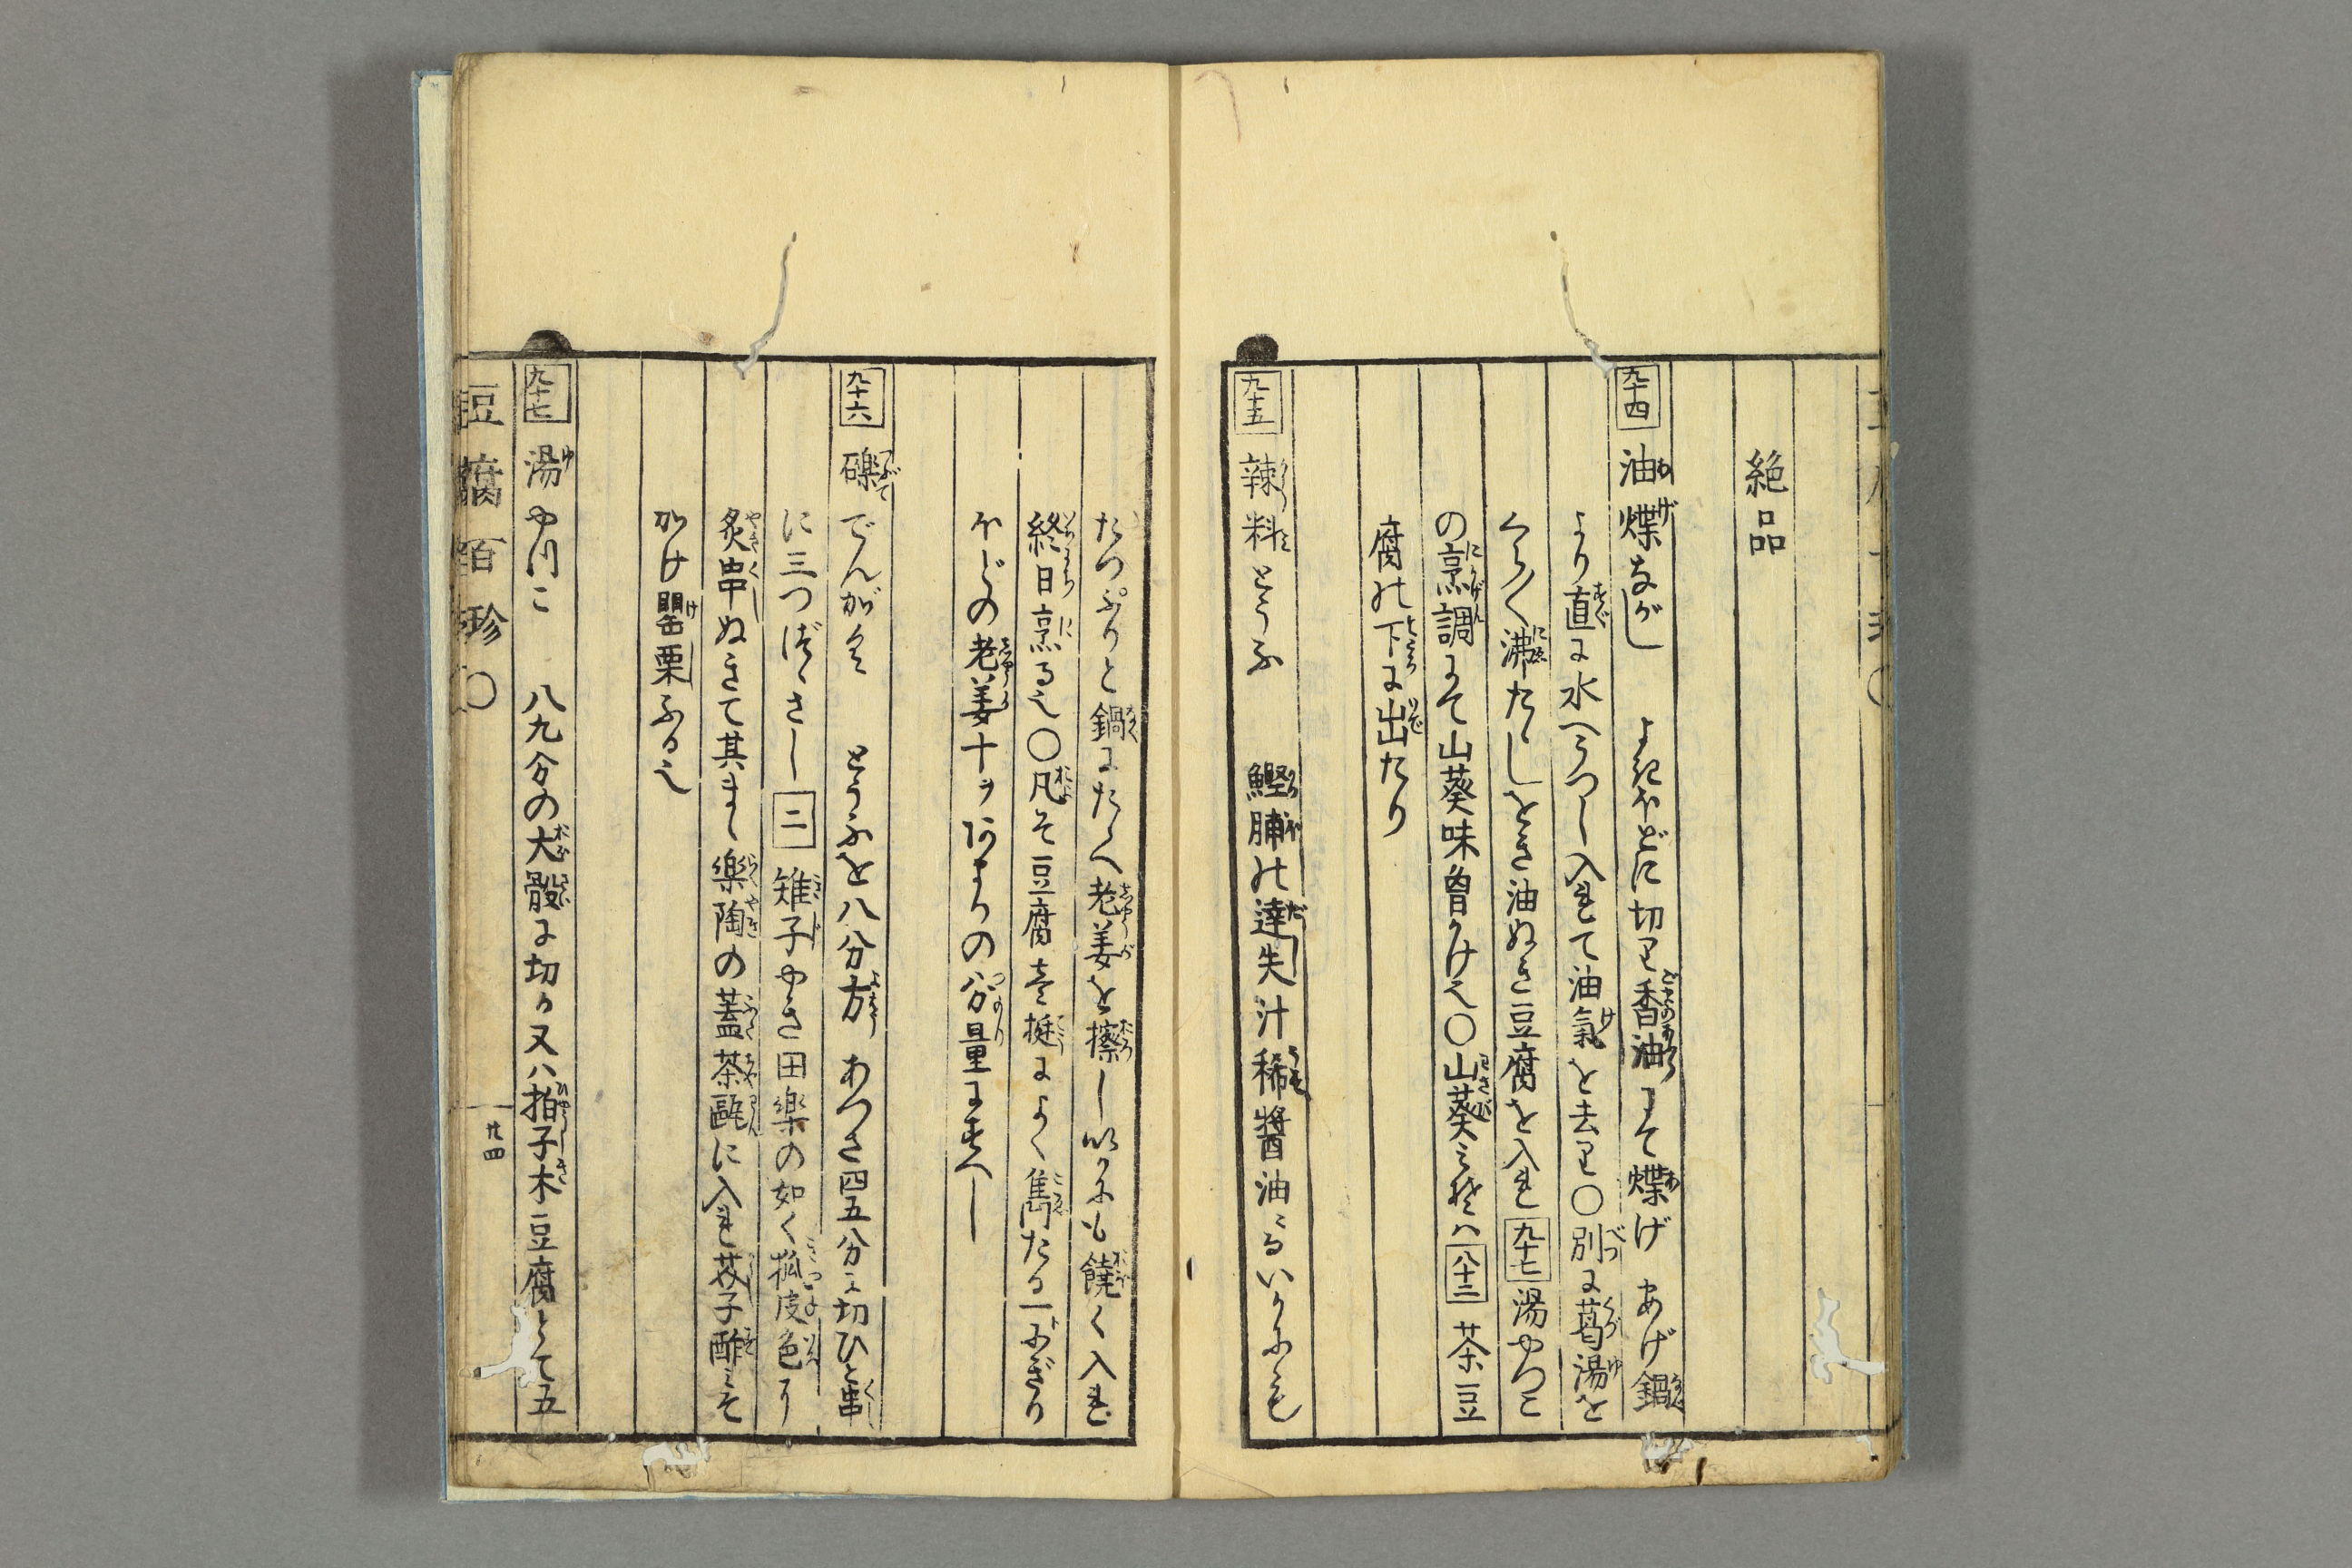 絶品
九十四 油煠ながし よきほどに切り香油にて煠げ あげ鍋
より直に水へうつし入れて油氣を去り〇別に葛湯を
くら〳〵沸たゝしをき油ぬき豆腐を入れ九十七湯やつこ
の烹調にて山葵味曽かけ也〇山葵みそハ八十二茶豆
腐の下に出たり
九十五 辣料とうふ 鰹脯の達失汁稀醤油にるいかにも
たつぷりと鍋にたゝへ老姜を擦し いかにも饒く入れ
終日烹る也〇凡そ豆腐壱挺によく雋たる一トにぎり
ほどの老姜十ヲあまりの分量にすべし
九十六 礫でんがく とうふを八分方 あつさ四五分に切ひと串
に三つづゝさし 二 雉子やき田楽の如く狐皮色に
炙串ぬきて其まゝ楽陶の蓋茶甌に入れ芥子酢みそ
かけ罌栗ふる也
九十七 湯やつこ 八九分の大骰に切か又ハ拍子木豆腐とて五
豆腐百珍〇
廿四